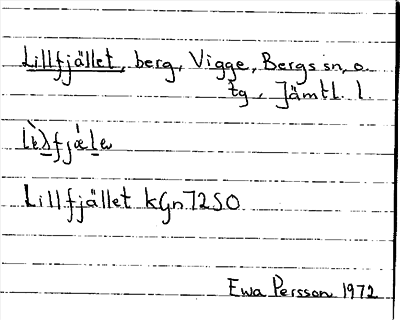 Lillfjället, berg, Vigge, Bergs sn, o.
tg, Jämtl. l.
Lillfjället kGn72SO
Ewa Persson 1972